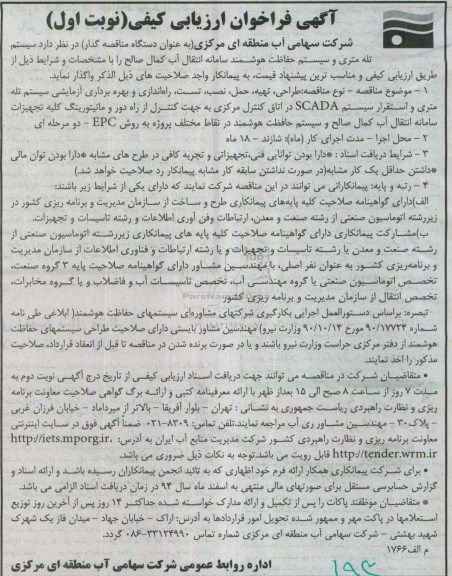 آگهی فراخوان ارزیابی کیفی(نوبت اول)
شرکت سهامی آب منطقه ای مرکزی(به عنوان دستگاه مناقصه گذار) در نظر دارد سیستم
تله متری و سیستم حفاظت هوشمند سامانه انتقال آب کمال صالح را با مشخصات و شرایط ذیل از
طریق ارزیابی کیفی و مناسب ترین پیشنهاد قیمت، به پیمانکار واجد صلاحیت های ذیل الذکر واگذار نماید.
۱ – موضوع مناقصه – نوع مناقصه:طراحی، تهیه، حمل، نصب، تست، راه‌اندازی و بهره برداری آزمایشی سیستم تله
متری و استقرار سیستم SCADA در اتاق کنترل مرکزی به جهت کنترل از راه دور و مانیتورینگ کلیه تجهیزات
سامانه انتقال آب کمال صالح و سیستم حافظت هوشمند در نقاط مختلف پروژه به روش EPC – دو مرحله ای
۲ – محل اجرا – مدت اجرای کار (ماه): شازند – ۱۸ ماه
۳ – شرایط دریافت اسناد : *دارا بودن توانایی فنی،تجهیزاتی و تجربه کافی در طرح های مشابه *دارا بودن توان مالی
*داشتن حداقل یک کار مشابه(در صورت نداشتن سابقه کار مشابه پیمانکار رد صلاحیت خواهد شد.)
۴ – رتبه و پایه: پیمانکارانی می توانند در این مناقصه شرکت نمایند که دارای یکی از شرایط زیر باشند:
الف)دارای گواهینامه صلاحیت کلیه پایه‌های پیمانکاری طرح و ساخت از سازمان مدیریت و برنامه ریزی کشور در
زیررشته اتوماسیون صنعتی از رشته صنعت و معدن، ارتباطات وفن آوری اطلاعات و رشته تاسیسات و تجهیزات.
ب)مشارکت پیمانکاری دارای گواهینامه صلاحیت کلیه پایه های پیمانکاری زیررشته اتوماسیون صنعتی از
رشته صنعت و معدن یا رشته تاسیسات و تجهیزات و یا رشته ارتباطات و فناوری اطلاعات از سازمان مدیریت
و برنامه‌ریزی کشور به عنوان نفر اصلی، با مهندسین مشاور دارای گواهینامه صلاحیت پایه ۳ گروه صنعت،
تخصص اتوماسیون صنعتی یا گروه مهندسی آب، تخصص تاسیسات آب و فاضلاب و یا گروه مخابرات،
تخصص انتقال از سازمان مدیریت و برنامه ریزی کشور.
تبصره: براساس دستورالعمل اجرایی بکارگیری شرکتهای مشاوره‌ای سیستمهای حفاظت هوشمند( ابلاغی طی نامه
شماره ۹۰/۱۷۷۲۴ مورخ ۹۰/۱۰/۱۴ وزارت نیرو) مهندسین مشاور بایستی دارای صلاحیت طراحی سیستمهای حفاظت
هوشمند از دفتر مرکزی حراست وزارت نیرو باشند و یا در صورت برنده شدن در مناقصه تا قبل از انعقاد قرارداد، صلاحیت
مذکور را اخذ نمایند.
* متقاضیان شرکت در مناقصه می توانند جهت دریافت اسناد ارزیابی کیفی از تاریخ درج آگهی نوبت دوم به
مدت ۷ روز از ساعت ۸ صبح الی ۱۵ بعداز ظهر با ارائه معرفینامه کتبی و ارائه برگ گواهی صلاحیت معاونت برنامه
ریزی و نظارت راهبردی ریاست جمهوری به نشانی : تهران – بلوار آفریقا – بالاتر از میرداماد – خیابان فرزان غربی
– پلاک ۳۰ – مهندسین مشاور ری آب مراجعه نمایند.تلفن تماس: ۸۳۰۹-۰۲۱ ضمناً آگهی فوق در سایت اینترنتی
معاونت برنامه ریزی و نظارت راهبردی کشور شرکت مدیریت منابع آب ایران به آدرس: http://iets.mporg.ir.
http://tender.wrm.ir قابل رویت می باشد.توجه به نکات ذیل ضروری می باشد.
* برای شرکت پیمانکاری همکار ارائه فرم خود اظهاری که به تائید انجمن پیمانکاران رسیده باشد و ارائه اسناد و
گزارش حسابرسی مستقل برای صورتهای مالی منتهی به اسفند ماه سال ۹۴ در زمان دریافت اسناد الزامی می باشد.
* متقاضیان موظفند پاکات را پس از تکمیل و ارائه مدارک خواسته شده حداکثر ۱۴ روز پس از آخرین روز توزیع
استعلامها در پاکت مهر و ممهور شده تحویل امور قراردادها به آدرس: اراک – خیابان جهاد – میدان فاز یک شهرک
شهید بهشتی – شرکت سهامی آب منطقه ای مرکزی شماره تماس ۳۳۱۲۴۹۹۰-۰۸۶ گردد.
م الف۱۷۶۶
اداره روابط عمومی شرکت سهامی آب منطقه ای مرکزی